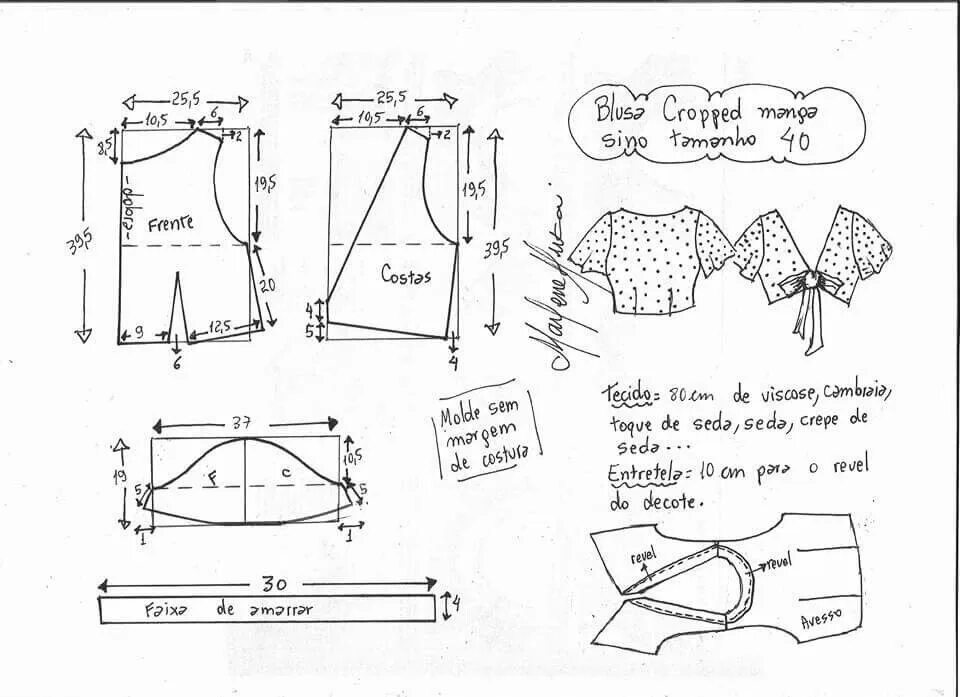 Blusa Cropped manga
sino tamanho 40
25,5
10,5
6
2
8,5
19,5
39,5
-dobra-
Frente
20
9
12,5
6
25,5
10,5
6
2
19,5
39,5
Costas
4
5
4
Marlene Mukai
37
19
10,5
F
C
5
5
1
1
Molde sem
margem
de costura
30
Faixa de amarrar
4
Tecido= 80 cm de viscose, cambraia,
toque de seda, seda, crepe de
seda...
Entretela= 10 cm para o revel
do decote.
revel
revel
Avesso